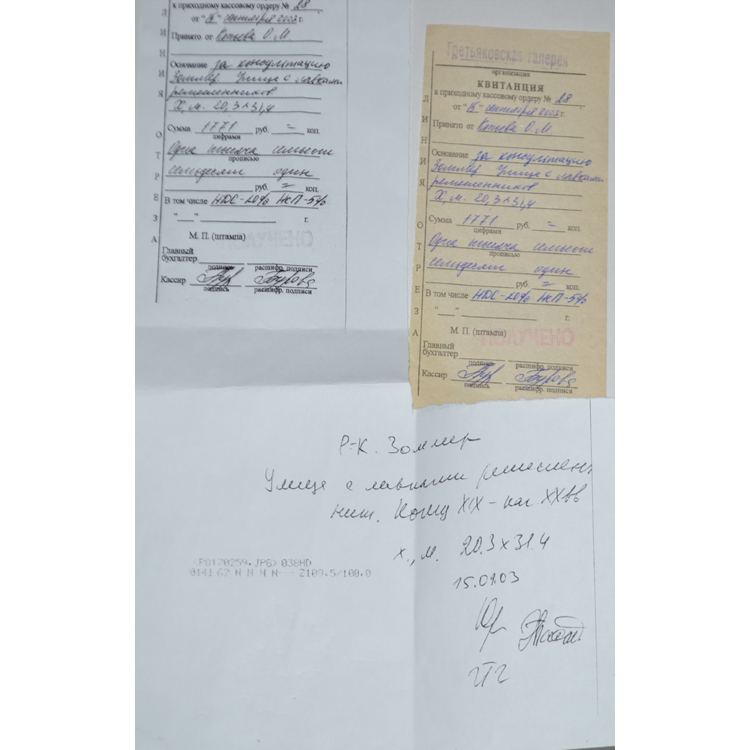 к приходному кассовому ордеру № 28
сентября 2003 г.
Принято от О.М.
Основание за консультацию
Улица с лавками
ремесленников
Х, м. 20,3 × 31,4
Сумма 1771 руб. = коп.
цифрами
Одна тысяча семьсот
прописью
семьдесят один
руб. = коп.
В том числе НДС-20% НсП-5%
"___" г.
М. П. (штампа)
Главный
бухгалтер
подпись расшифр. подписи
Кассир
подпись расшифр. подписи
ЛИНИЯ ОТРЕЗА
ПОЛУЧЕНО
Третьяковская галерея
организация
КВИТАНЦИЯ
к приходному кассовому ордеру № 28
сентября 2003 г.
Принято от О.М
Основание за консультацию
Улица с лавками
ремесленников
Х, м. 20,3 × 31,4
Сумма 1771 руб. = коп.
цифрами
Одна тысяча семьсот
прописью
семьдесят один
руб. = коп.
В том числе НДС-20% НсП-5%
"___" г.
М. П. (штампа)
ПОЛУЧЕНО
Главный
бухгалтер
подпись расшифр. подписи
Кассир
подпись расшифр. подписи
ЛИНИЯ ОТРЕЗА
Р.-К. Зоммер
Улица с лавками ремеслен
ник. Конец XIX - нач XXвв
х., м. 20.3 × 31.4
15.09.03
ГТГ
(P8170259.JPG) 038HD
0141 62 N N N N -- Z109.5/100.0